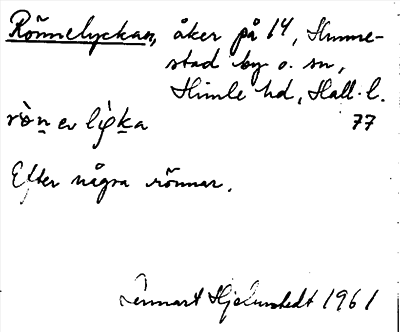 Rönnelyckan, åker på 14, Hunne-
stad by o. sn,
Himle hd, Hall. l.
rò̀n er lỳ́ka 77
Efter några rönnar.
Lennart Hjelmstedt 1961